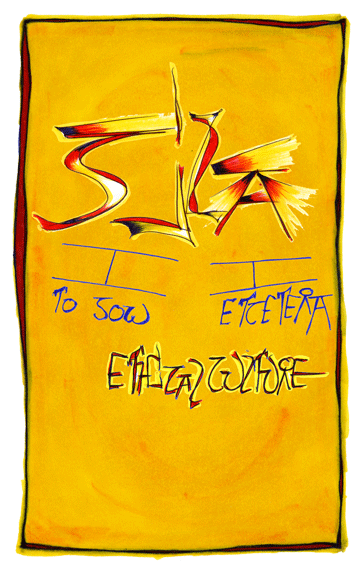 SILA
TO SOW ETCETERA
ETHICAL CULTURE